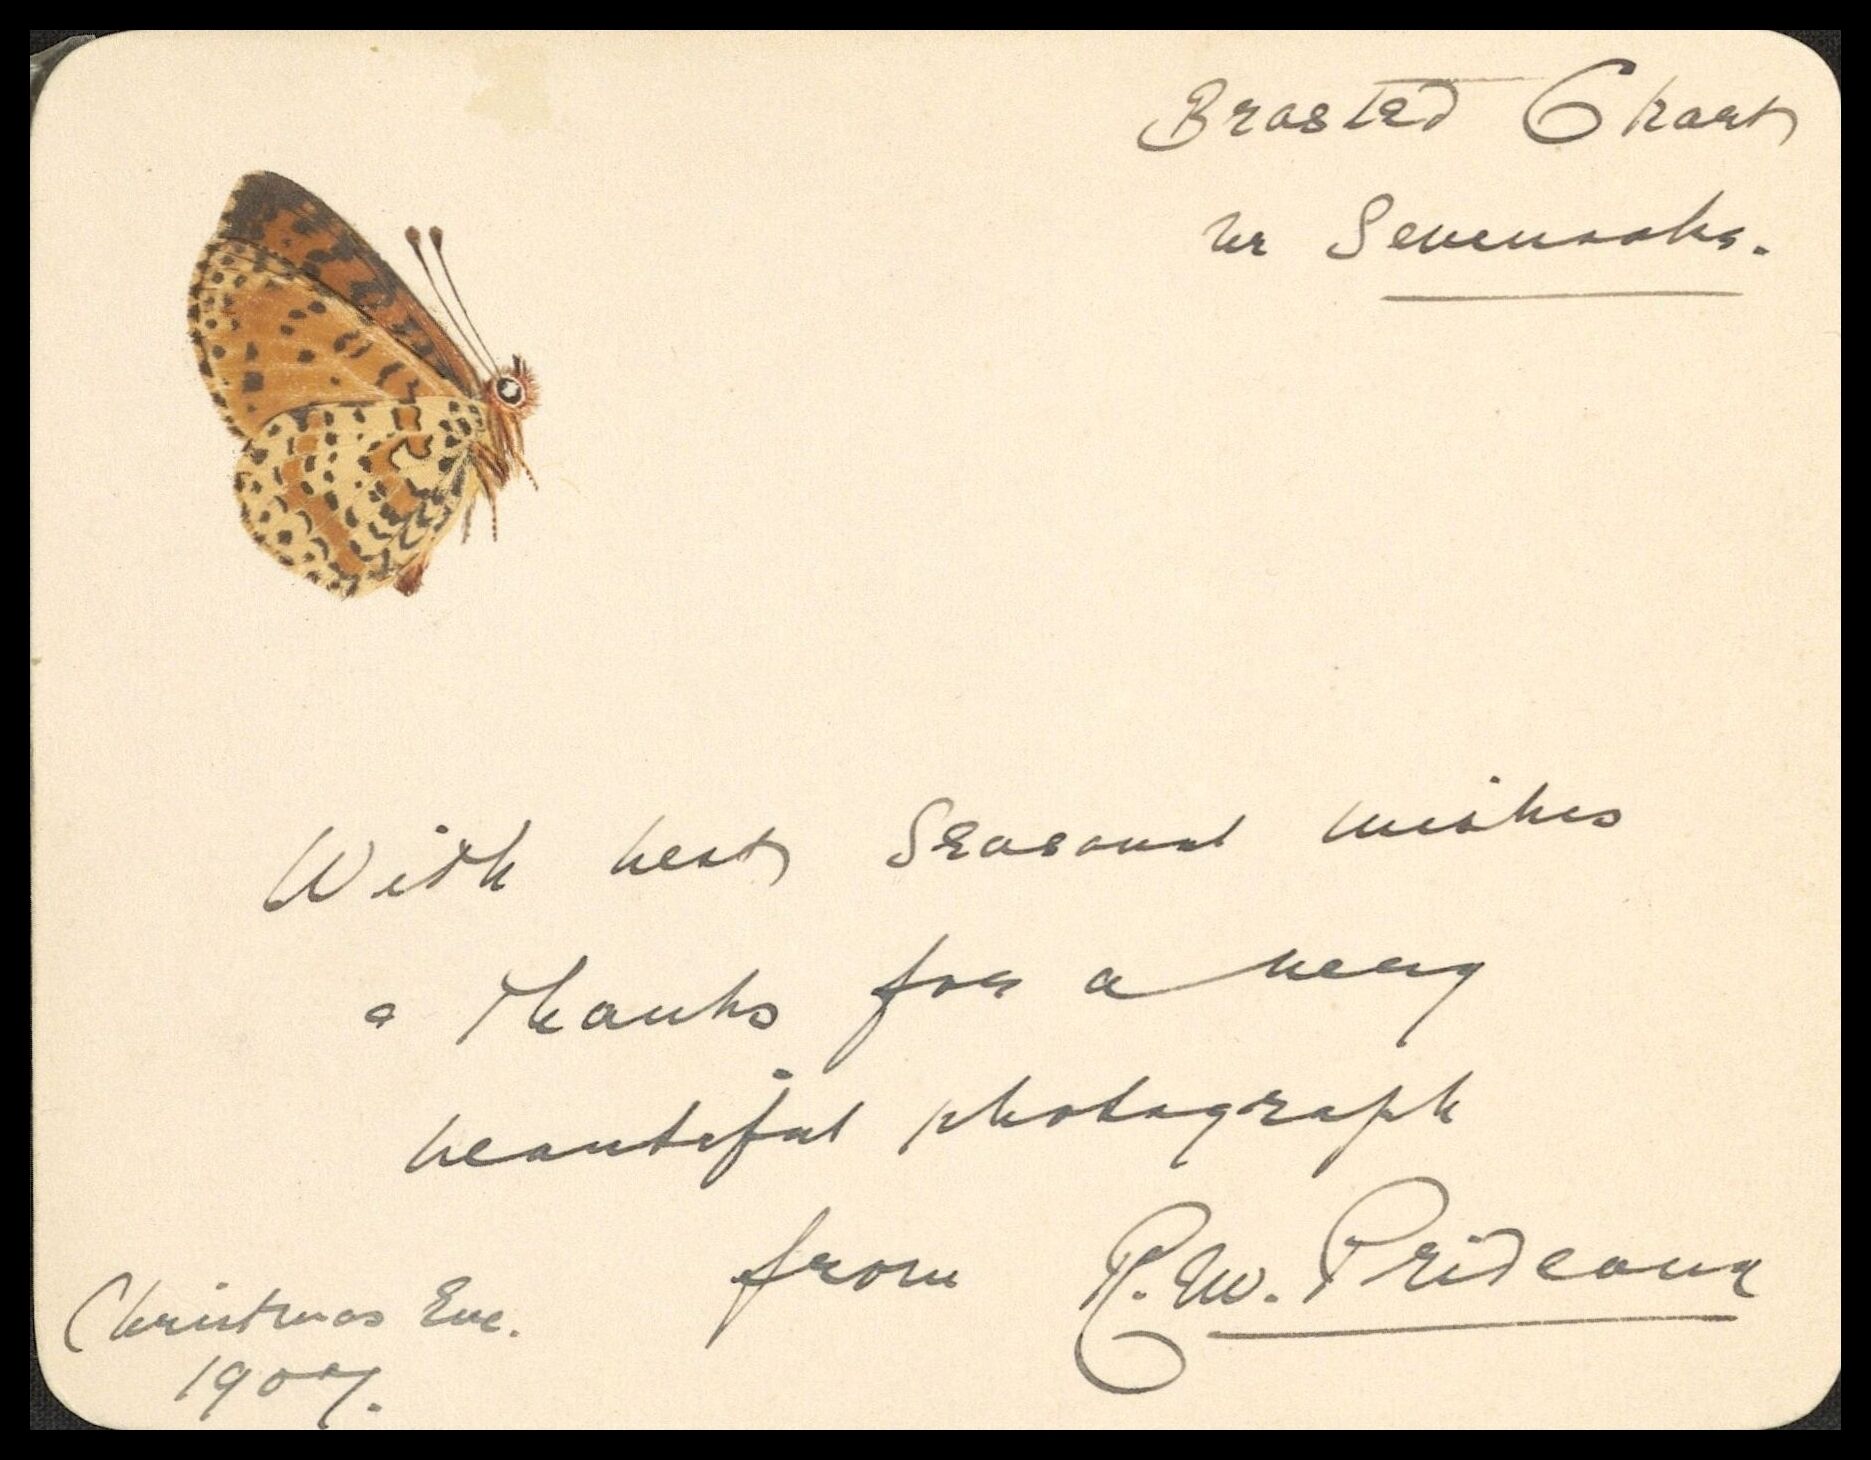 Brasted Chart
nr Sevenoaks.
With best Seasonal wishes
& thanks for a very
beautiful photograph
from R. M. Prideaux
Christmas Eve.
1907.